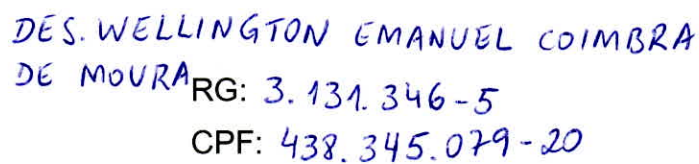 DES. WELLINGTON EMANUEL COIMBRA
DE MOURA
RG: 3.131.346-5
CPF: 438.345.079-20